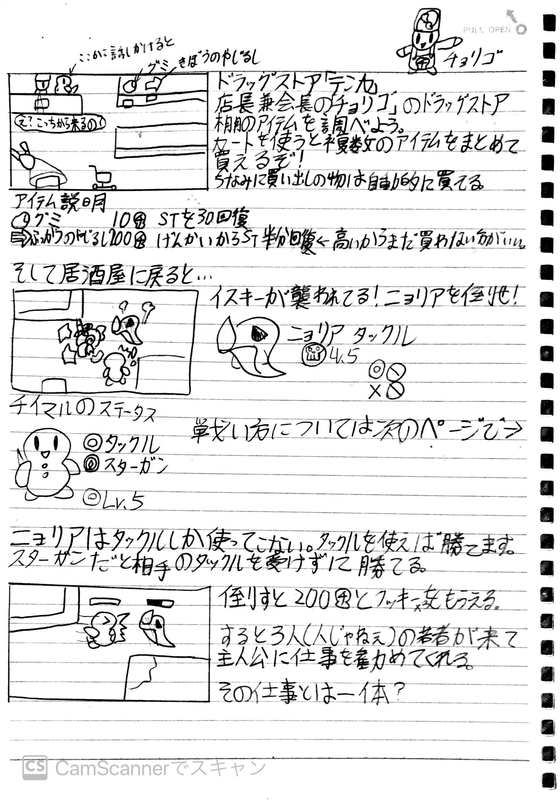 PULL OPEN
ここから話しかけると
グミ
きぼうのやじるし
チョリゴ
え?こっちから来るの?
ドラッグストア「テンカ」
店長兼会長の「チョリゴ」のドラッグストア
棚のアイテムを調べよう。
カートを使うと複数のアイテムをまとめて
買えるぞ!
ちなみに買い出しの物は自動的に買てる。
アイテム説明
グミ 10 STを30回復
200 げんかいからST半分回復←高いからまだ買わない方がいい。
そして居酒屋に戻ると…
イスキーが襲われてる!ニョリアを倒せ!
ニョリア タックル
Lv.5
チイマルのステータス
タックル
スターガン
Lv.5
戦い方については次のページで→
ニョリアはタックルしか使ってこない。タックルを使えば勝てます。
スターガンだと相手のタックルを受けずに勝てる。
倒すと200とクッキーをもらえる。
すると3人(人じゃねぇ)の若者が来て
主人公に仕事を勧めてくれる。
その仕事とは一体?
CS CamScannerでスキャン